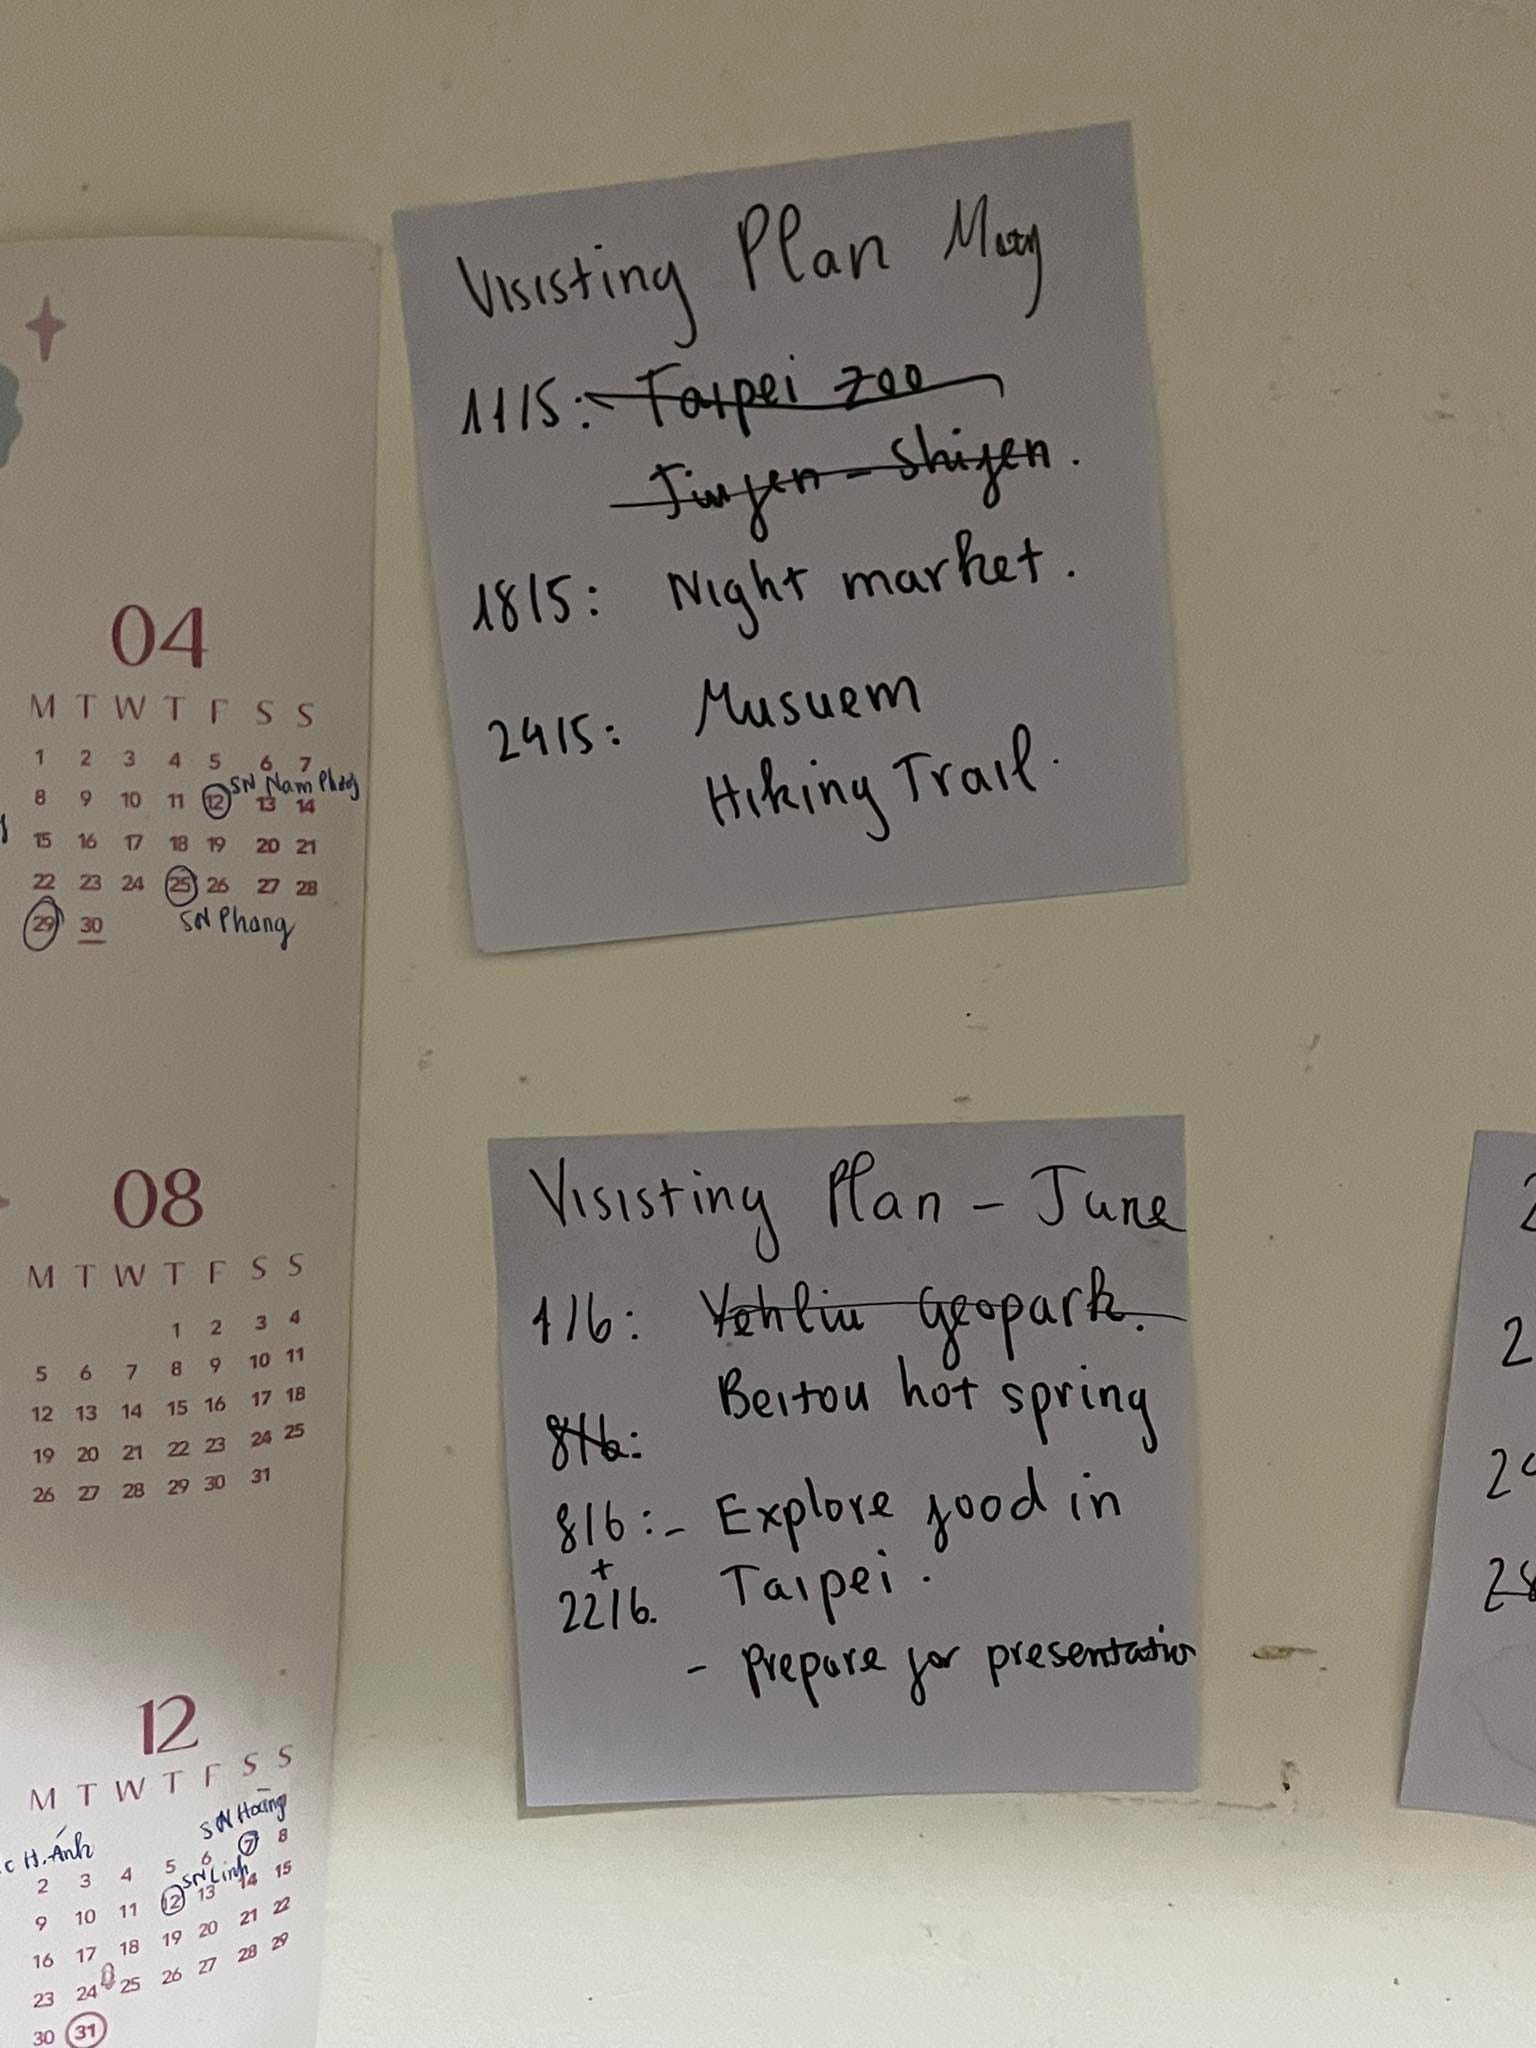 04
M T W T F S S
1 2 3 4 5 6 7
SN Nam Phong
8 9 10 11 12 13 14
15 16 17 18 19 20 21
22 23 24 25 26 27 28
29 30
SN Phang
08
M T W T F S S
1 2 3 4
5 6 7 8 9 10 11
12 13 14 15 16 17 18
19 20 21 22 23 24 25
26 27 28 29 30 31
12
M T W T F S S
SN Hoàng
H. Ánh
2 3 4 5 6 7 8
SN Linh
9 10 11 12 13 14 15
16 17 18 19 20 21 22
23 24 25 26 27 28 29
30 31
Visisting Plan May
11/5: Taipei zoo
- Shifen.
18/5: Night market.
24/5: Musuem
Hiking Trail.
Visisting Plan - June
1/6: Yehliu Geopark.
Beitou hot spring
8/6:
8/6: - Explore food in
+
22/6. Taipei.
- Prepare for presentation